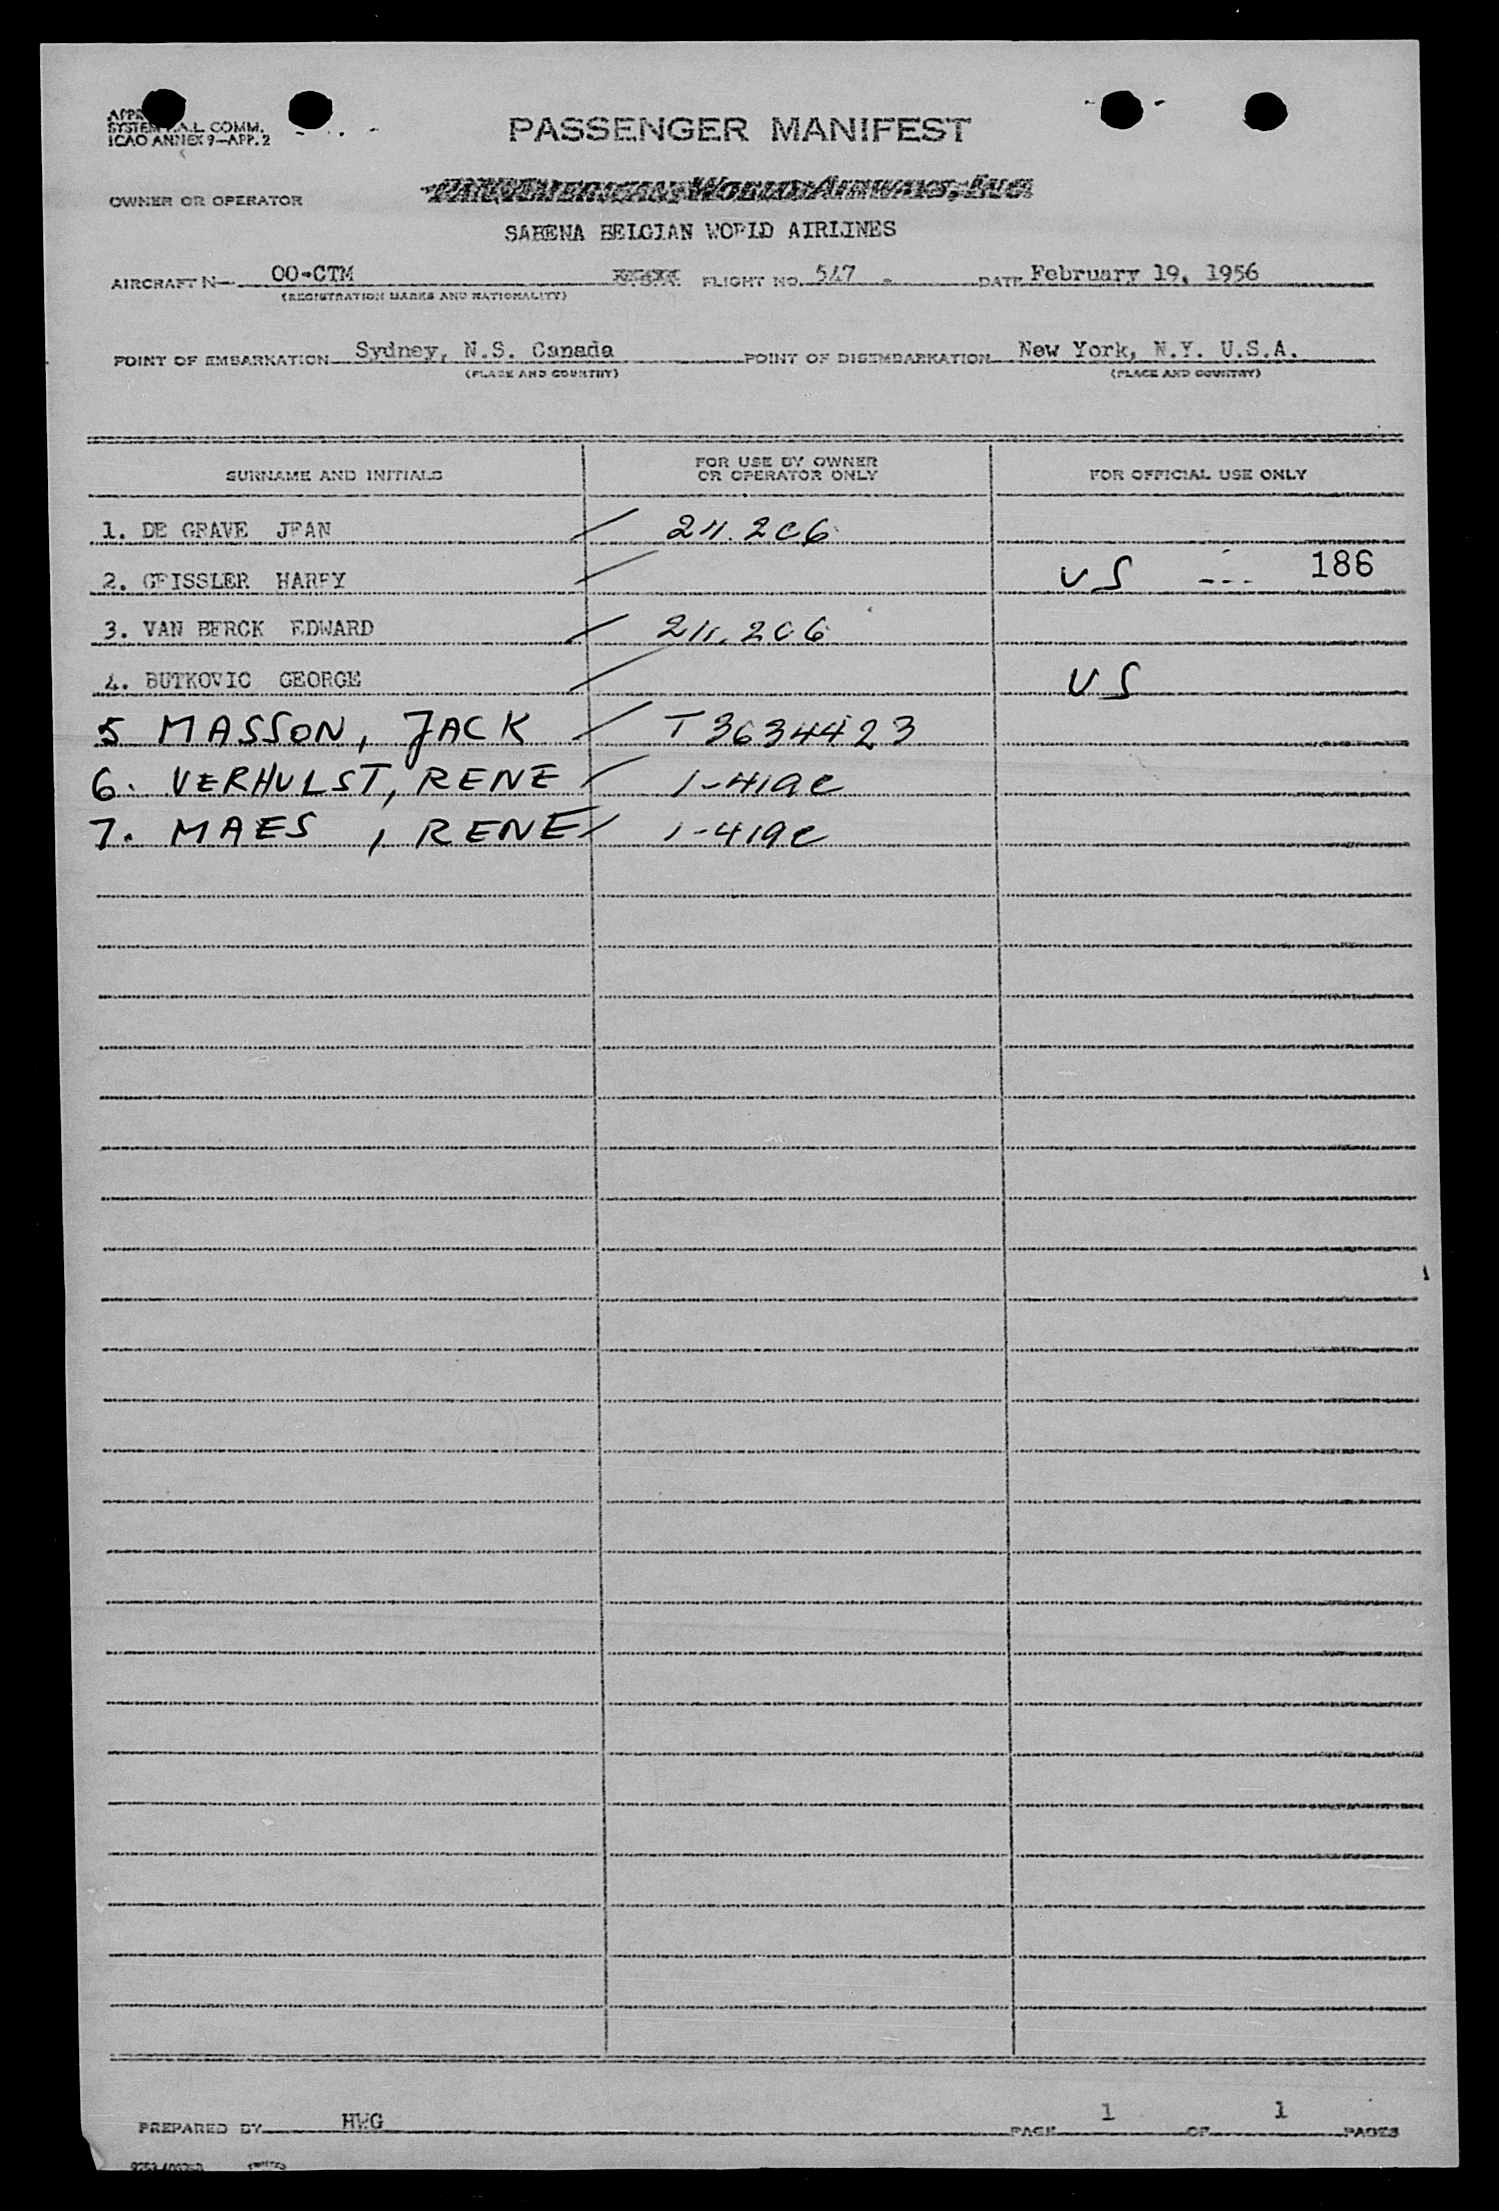 SYSTEM F.A.L. COMM.
ICAO ANNEX 9—APP. 2
PASSENGER MANIFEST
OWNER OR OPERATOR
SABENA BELGIAN WORLD AIRLINES
AIRCRAFT N— OO-CTM FLIGHT NO. 547 DATE February 19, 1956
(REGISTRATION MARKS AND NATIONALITY)
POINT OF EMBARKATION Sydney, N.S. Canada POINT OF DISEMBARKATION New York, N.Y. U.S.A.
(PLACE AND COUNTRY) (PLACE AND COUNTRY)
SURNAME AND INITIALS FOR USE BY OWNER OR OPERATOR ONLY FOR OFFICIAL USE ONLY
1. DE GRAVE JEAN / 211.206
2. GEISSLER HARRY / US --- 186
3. VAN BERCK EDWARD / 211.206
4. BUTKOVIC GEORGE / US
5 MASSON, JACK / T3634423
6. VERHULST, RENE / 1-419c
7. MAES , RENE / 1-419c
PREPARED BY HWG PAGE 1 OF 1 PAGES